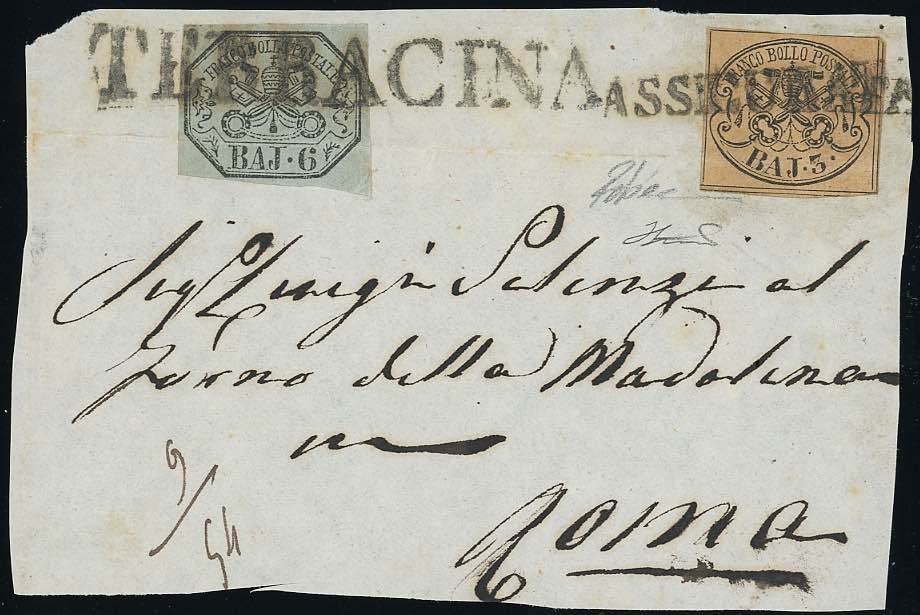 TERRACINA
ASSICURATA
FRANCO BOLLO POSTALE
BAJ. 6
FRANCO BOLLO POSTALE
BAJ. 3.
Sig Luigi Salenzi al
forno della Madalena
in
Roma
9/54